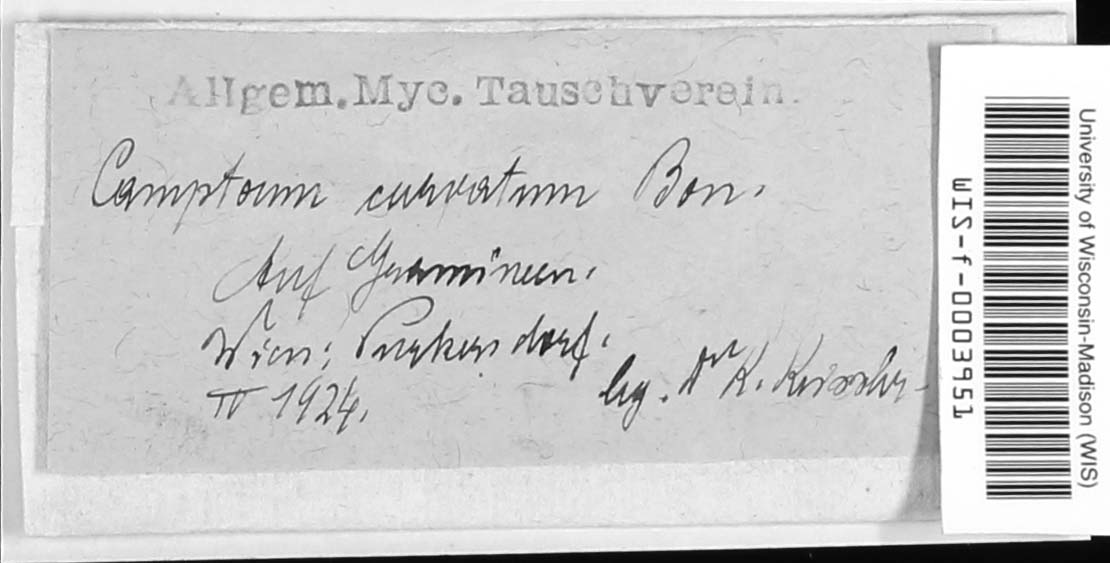 Allgem. Myc. Tauschverein.
Camptoum curvatum Bon.
Auf Gramineen.
Wien: Purkersdorf.
IV 1924.
leg. Dr K. Keissler
University of Wisconsin-Madison (WIS)
WIS-f-0003951